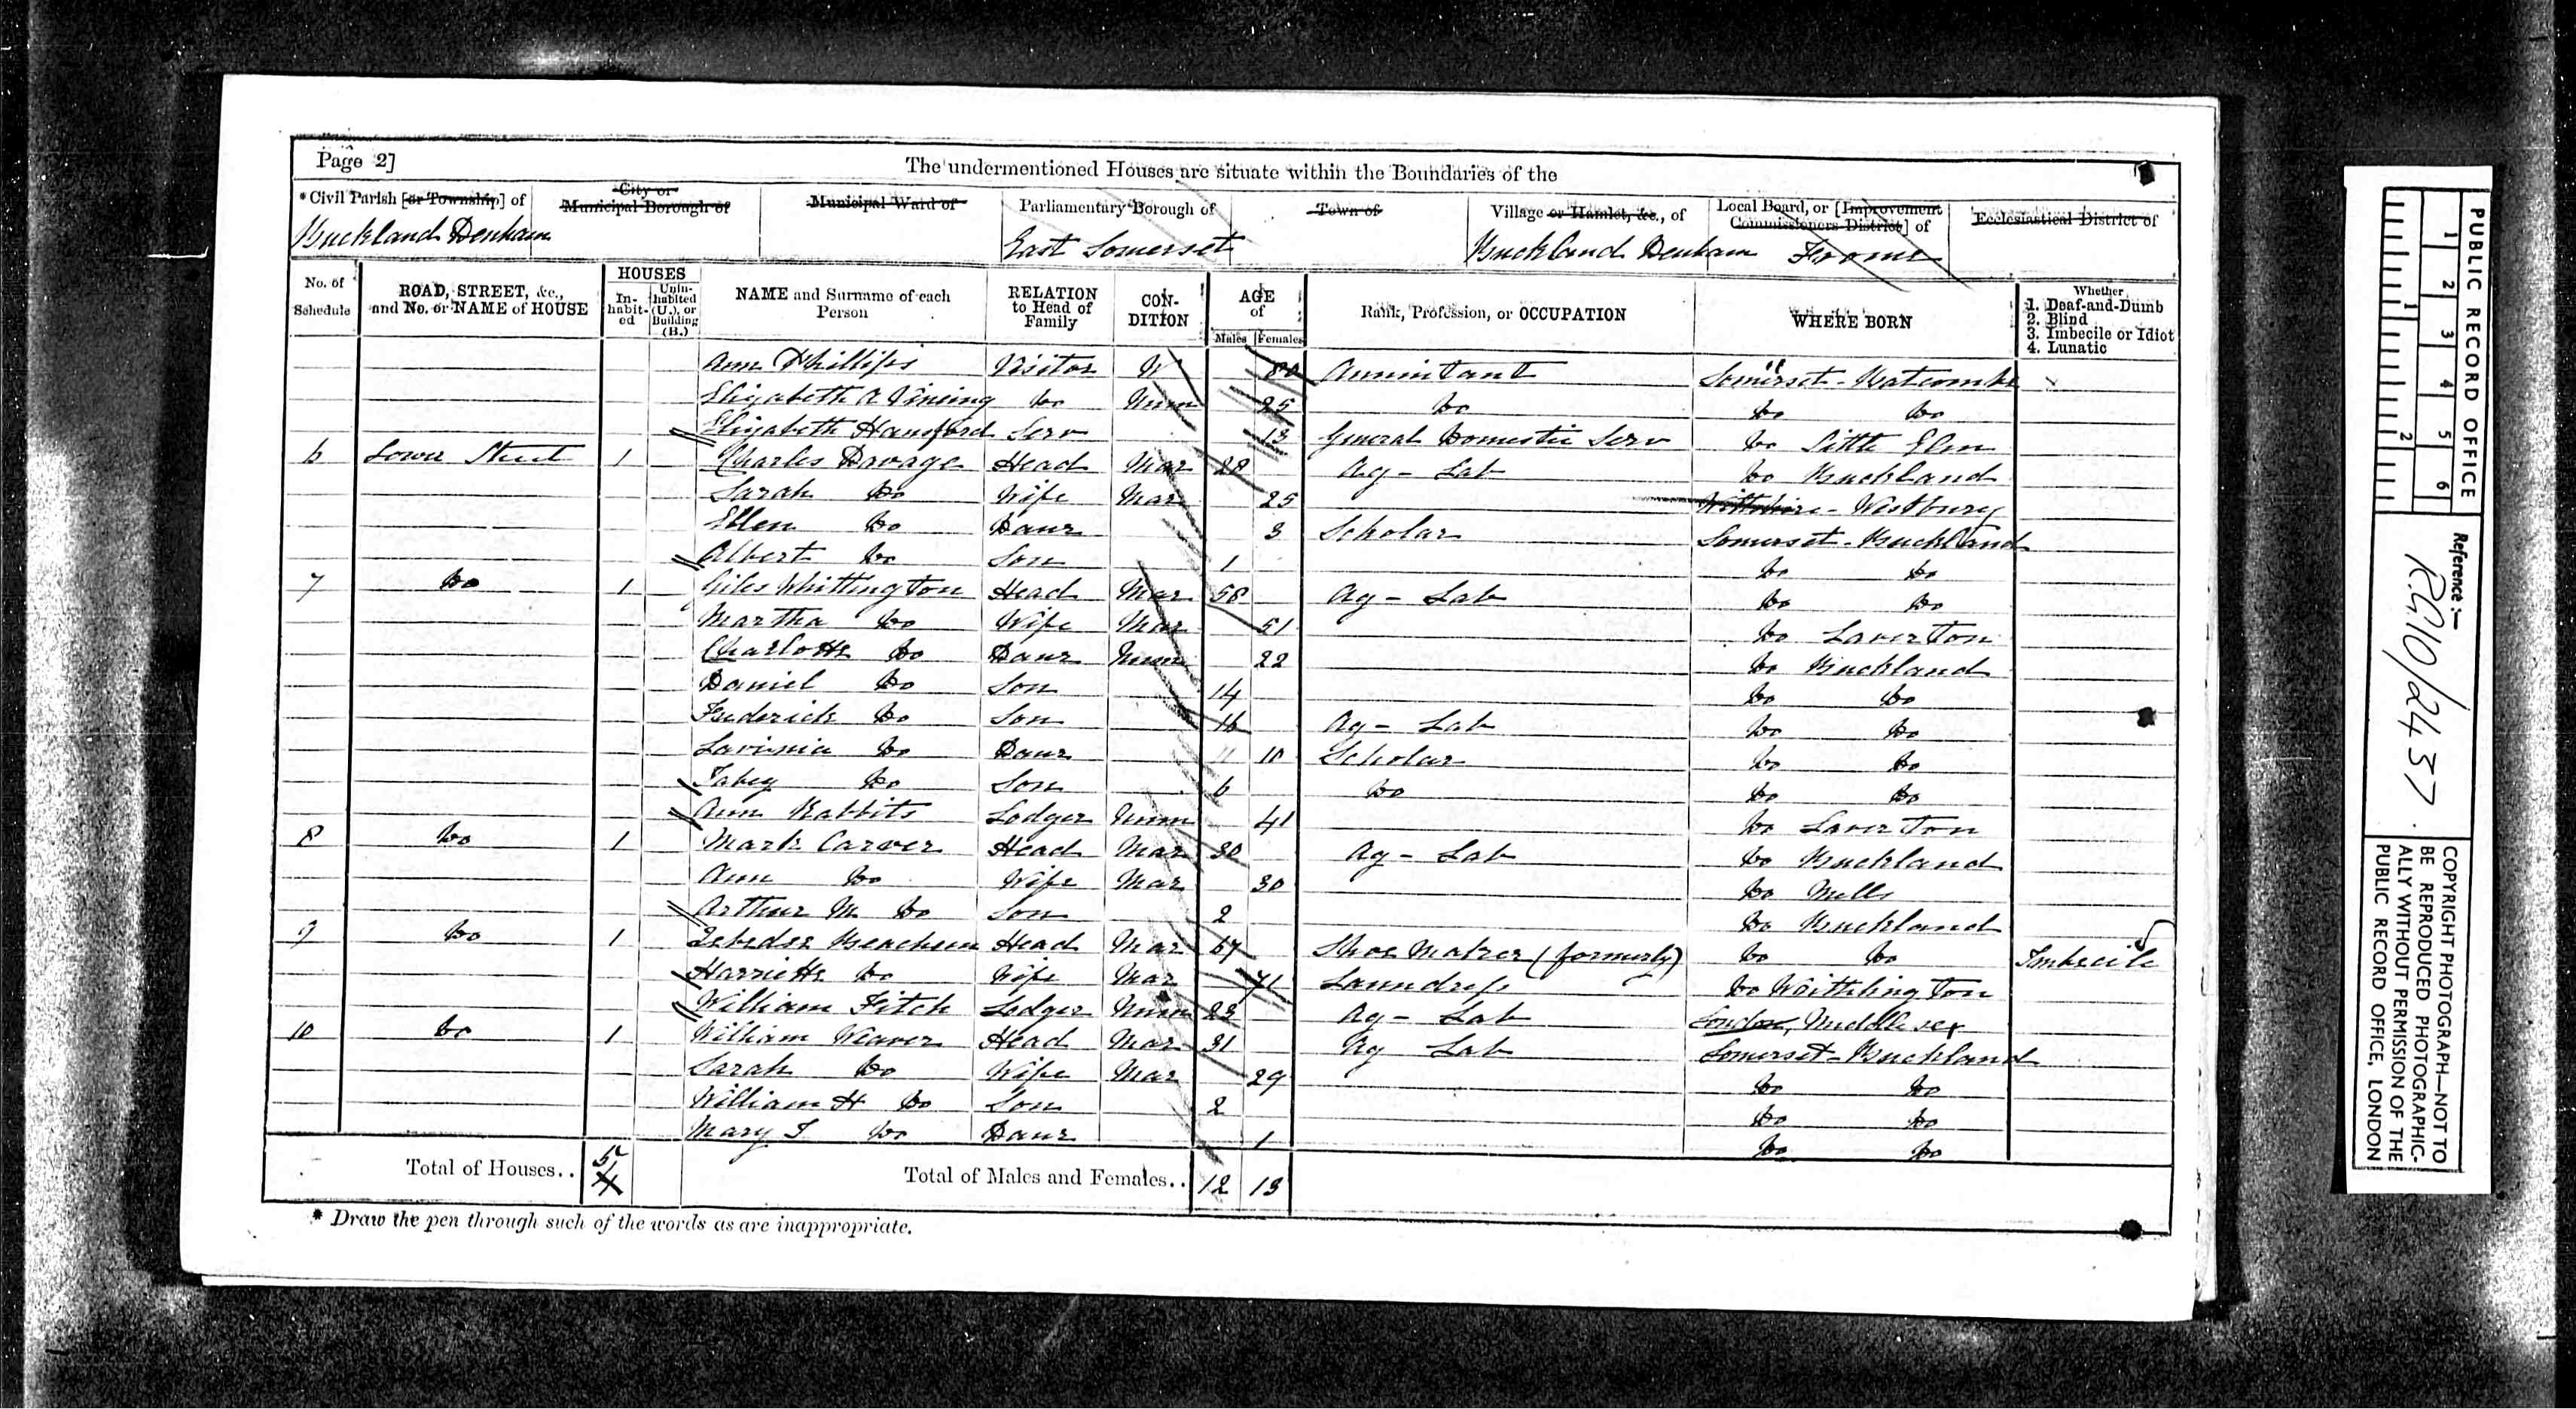 Page 2]
The undermentioned Houses are situate within the Boundaries of the
*Civil Parish [or Township] of
City or Municipal Borough of
Municipal Ward of
Parliamentary Borough of
Town of
Village or Hamlet, &c., of
Local Board, or [Improvement Commissioners District] of
Ecclesiastical District of
Buckland Denham East Somerset Buckland Denham Frome
No. of Schedule
ROAD, STREET, &c., and No. or NAME of HOUSE
HOUSES
In-habit-ed
Unin-habited (U.), or Building (B.)
NAME and Surname of each Person
RELATION to Head of Family
CON-DITION
AGE of
Males Females
Rank, Profession, or OCCUPATION
WHERE BORN
Whether
1. Deaf-and-Dumb
2. Blind
3. Imbecile or Idiot
4. Lunatic
Ann Phillips Visitor W 80 Annuitant Somerset - Watcombe
Elizabeth A Vincing Do Unm 25 Do Do Do
Elizabeth Hansford Serv 13 General Domestic Serv Do Little Elm
6 Lower Street 1 Charles Davage Head Mar 28 Ag - Lab Do Buckland
Sarah Do Wife Mar 25 Wiltshire - Westbury
Ellen Do Daur 3 Scholar Somerset - Buckland
Albert Do Son 1 Do Do
7 Do 1 Giles Whittington Head Mar 58 Ag - Lab Do Do
Martha Do Wife Mar 51 Do Laverton
Charlotte Do Daur Unm 22 Do Buckland
Daniel Do Son 14 Do Do
Frederick Do Son 16 Ag - Lab Do Do
Lavinia Do Daur 10 Scholar Do Do
Do Son 6 Do Do Do
Ann Rabbits Lodger Unm 41 Do Laverton
8 Do 1 Mark Carver Head Mar 30 Ag - Lab Do Buckland
Ann Do Wife Mar 30 Do Mells
Arthur M. Do Son 2 Do Buckland
9 Do 1 Zebedee Beacham Head Mar 67 Shoe Maker (formerly) Do Do Imbecile
Harriette Do Wife Mar 71 Laundress Do Writhlington
William Fitch Lodger Unm 23 Ag - Lab London, Middlesex
10 Do 1 William Weaver Head Mar 31 Ag Lab Somerset - Buckland
Sarah Do Wife Mar 29 Do Do
William H Do Son 2 Do Do
Mary S Do Daur 1 Do Do
Total of Houses.. 5 4
Total of Males and Females.. 12 13
* Draw the pen through such of the words as are inappropriate.
PUBLIC RECORD OFFICE
1 2 3 4 5 6
1 2
Reference :-
RG10/2437
COPYRIGHT PHOTOGRAPH—NOT TO BE REPRODUCED PHOTOGRAPHIC-ALLY WITHOUT PERMISSION OF THE PUBLIC RECORD OFFICE, LONDON